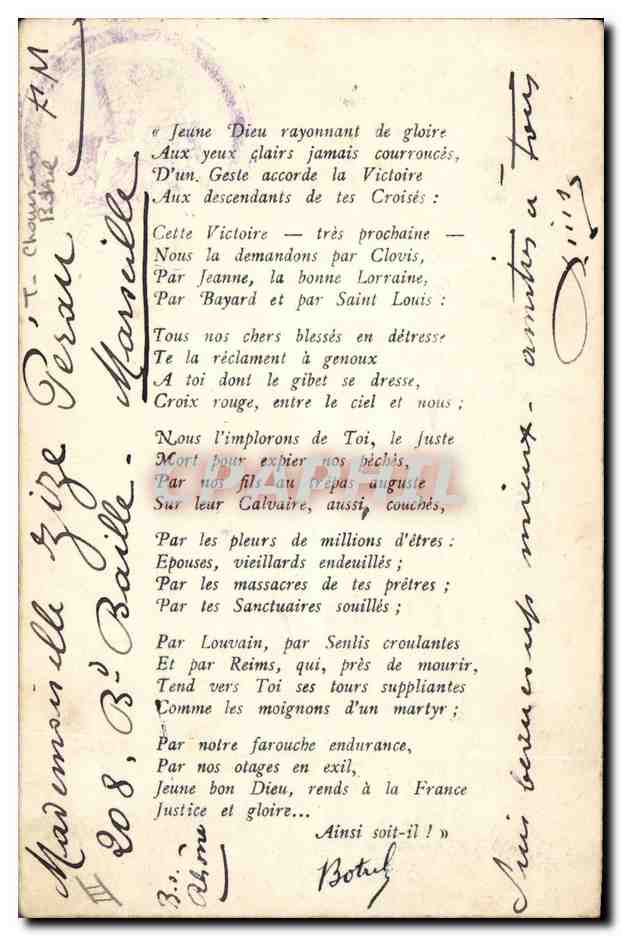 « Jeune Dieu rayonnant de gloire
Aux yeux clairs jamais courroucés,
D'un Geste accorde la Victoire
Aux descendants de tes Croisés :
Cette Victoire — très prochaine —
Nous la demandons par Clovis,
Par Jeanne, la bonne Lorraine,
Par Bayard et par Saint Louis :
Tous nos chers blessés en détresse
Te la réclament à genoux
A toi dont le gibet se dresse,
Croix rouge, entre le ciel et nous ;
Nous l'implorons de Toi, le Juste
Mort pour expier nos péchés,
Par nos fils au trépas auguste
Sur leur Calvaire, aussi, couchés,
Par les pleurs de millions d'êtres :
Epouses, vieillards endeuillés ;
Par les massacres de tes prêtres ;
Par tes Sanctuaires souillés ;
Par Louvain, par Senlis croulantes
Et par Reims, qui, près de mourir,
Tend vers Toi ses tours suppliantes
Comme les moignons d'un martyr ;
Par notre farouche endurance,
Par nos otages en exil,
Jeune bon Dieu, rends à la France
Justice et gloire...
Ainsi soit-il ! »
Botrel
Mademoiselle Zize Péran
208, Bd Baille - Marseille
B.s. Rhône
F M
Botrel
III
Suis beaucoup mieux - amitiés à tous
CPAPHIL